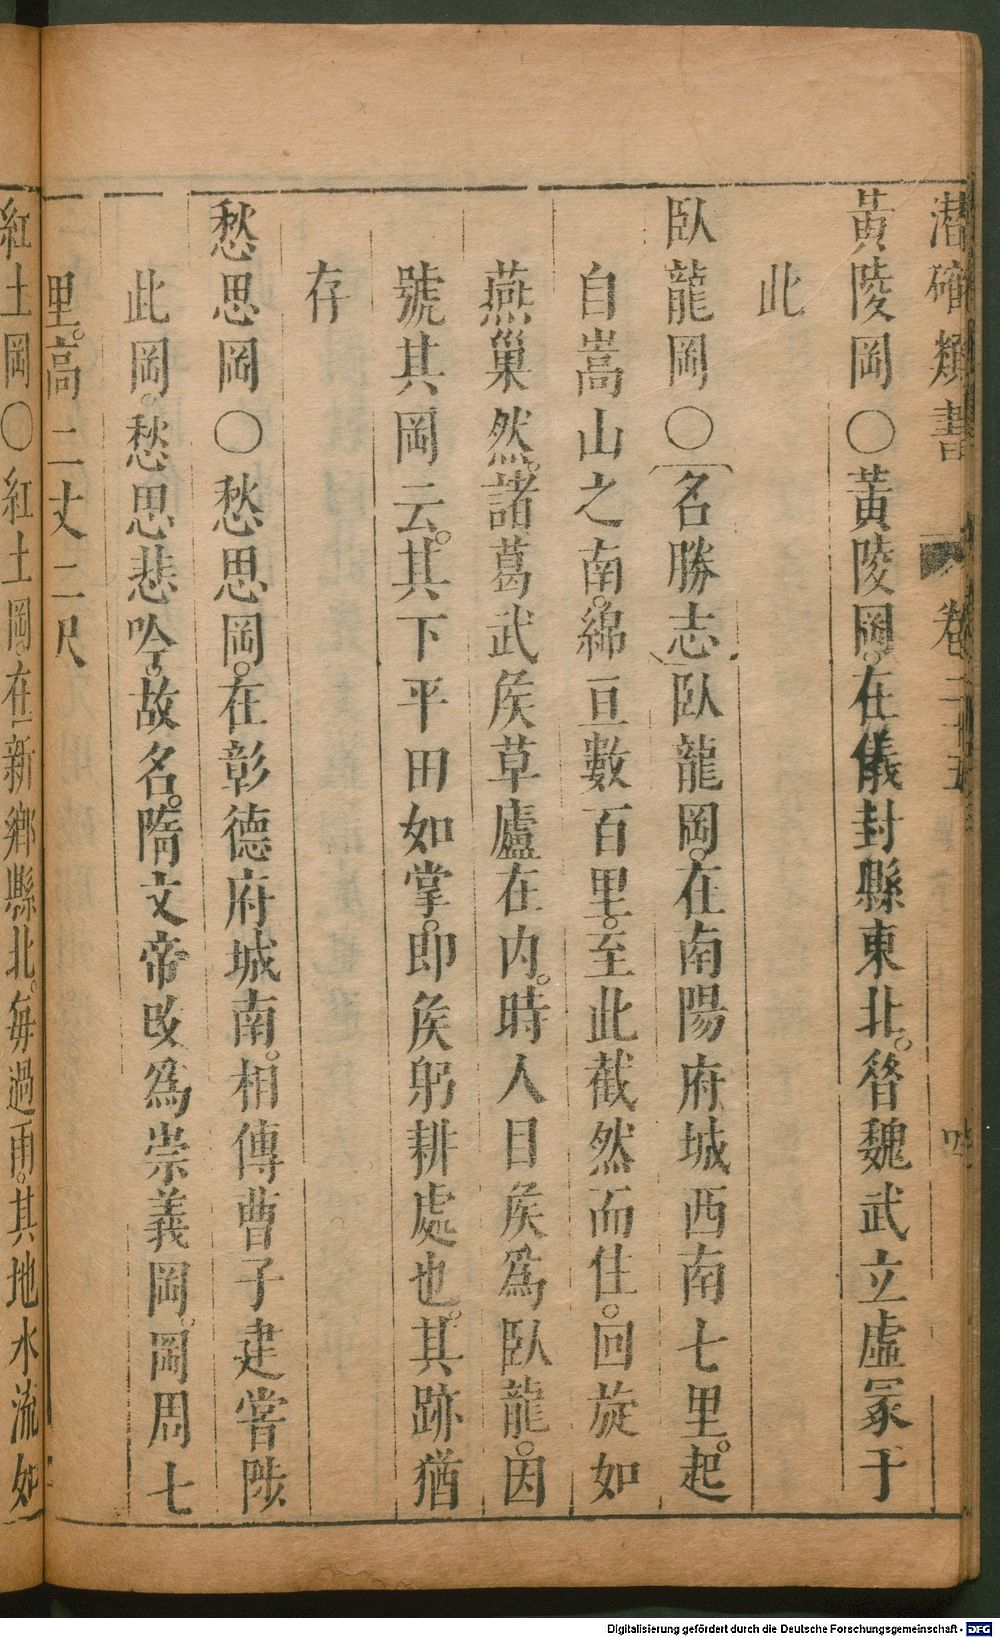 潜確類書 卷二十五 四
黃陵岡〇黃陵岡。在儀封縣東北。昝魏武立虛冢于
此
臥龍岡〇〔名勝志〕臥龍岡。在南陽府城西南七里。起
自嵩山之南。綿亘數百里。至此截然而住。回旋如
燕巢然。諸葛武矦草廬在内。時人目矦為臥龍。因
號其岡云。其下平田如掌。即矦躬耕處也。其跡猶
存
愁思岡〇愁思岡。在彰德府城南。相傳曹子建嘗陟
此岡。愁思悲吟。故名。隋文帝改為崇義岡。岡周七
里。高二丈二尺
紅土岡〇紅土岡。在新鄉縣北。每過雨。其地水流如
Digitalisierung gefördert durch die Deutsche Forschungsgemeinschaft - DFG